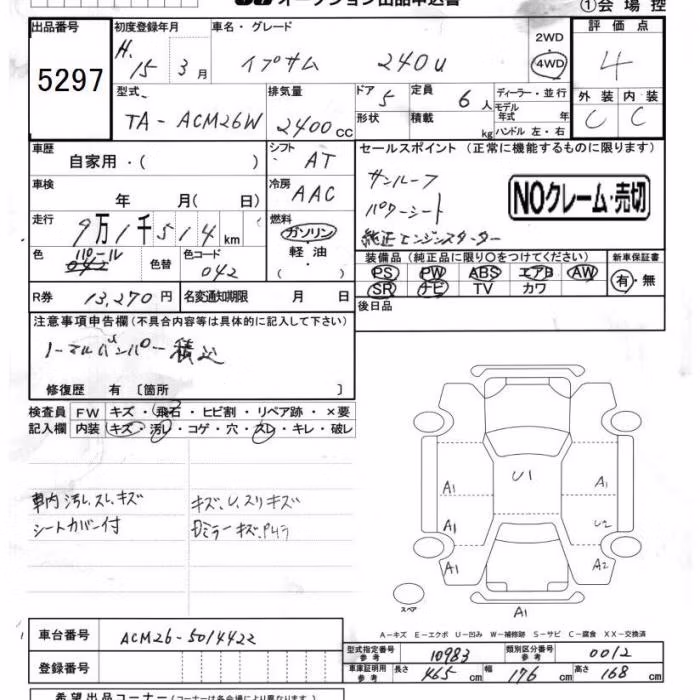 オークション出品申込書
①会場控
出品番号
5297
初度登録年月
H. 15 3月
車名・グレード
イプサム 240u
2WD
4WD
評価点
4
外装 内装
C C
型式
TA-ACM26W
排気量
2400 CC
ドア 5
定員 6人
形状
積載 kg
ディーラー・並行
モデル年式 年
ハンドル 左・右
車歴
自家用・( )
シフト
AT
車検
年 月( 日)
冷房
AAC
走行
9万1千514km
燃料
ガソリン
軽油
( )
色
パール
042
色替
色コード
042
R券
13,270円
名変通知期限 月 日
セールスポイント(正常に機能するものに限ります)
サンルーフ
パワーシート
純正エンジンスターター
NOクレーム・売切
装備品(純正品に限り○をつけてください)
PS PW ABS エアB AW
SR ナビ TV カワ
新車保証書
有・無
後日品
注意事項申告欄(不具合内容等は具体的に記入して下さい)
ノーマルバンパー積込
修復歴 有〔箇所 〕
検査員記入欄
FW キズ・飛石・ヒビ割・リペア跡・×要
内装 キズ・汚レ・コゲ・穴・スレ・キレ・破レ
車内汚レ、スレ、キズ
シートカバー付
キズ、U、スリキズ
Dミラーキズ、
U1
A1
A1
A1
A1
U2
A2
A1
スペア
A1
A-キズ E-エクボ U-凹み W-補修跡 S-サビ C-腐食 XX-交換済
車台番号
ACM26-5014422
登録番号
型式指定番号 参考
10983
類別区分番号 参考
0012
車庫証明用 参考
長さ 465 cm
幅 176 cm
高さ 168 cm
希望出品コーナー(コーナー名は各会場により異なります)